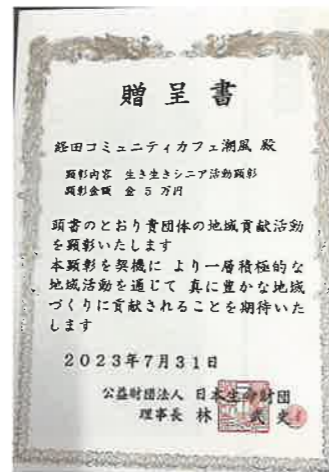 贈呈書
経田コミュニティカフェ潮風 殿
顕彰内容 生き生きシニア活動顕彰
顕彰金額 金5万円
頭書のとおり貴団体の地域貢献活動
を顕彰いたします
本顕彰を契機に より一層積極的な
地域活動を通じて 真に豊かな地域
づくりに貢献されることを期待いた
します
2023年7月31日
公益財団法人 日本生命財団
理事長 林 武史